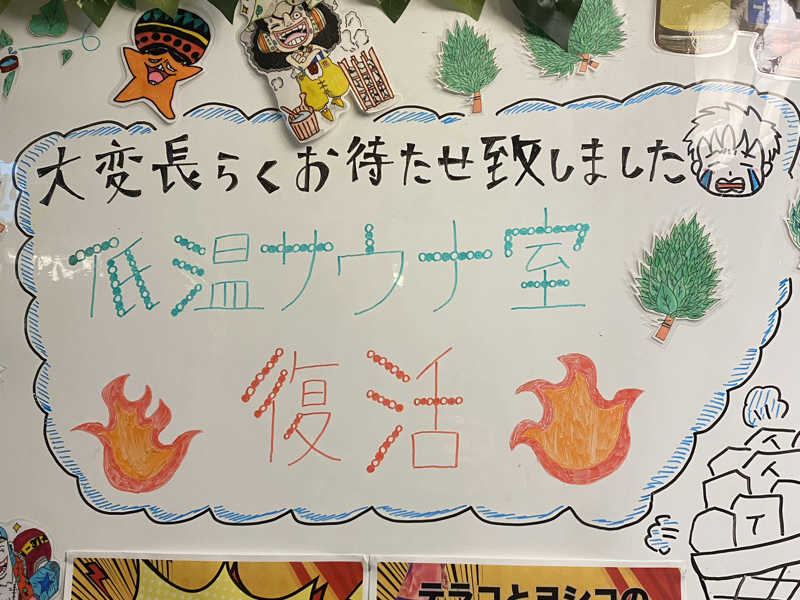 大変長らくお待たせ致しました
低温サウナ室
復活
テラコとヨシコの